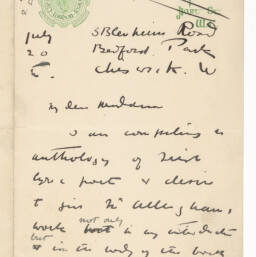 July
3 Blenheim Road
20
Bedford Park
Chiswick. W
My dear Madam
I am compiling an
anthology of Irish
lyric poetry & desire
to give Mr Allingham's
work not only in my introduct
but in the body of the book